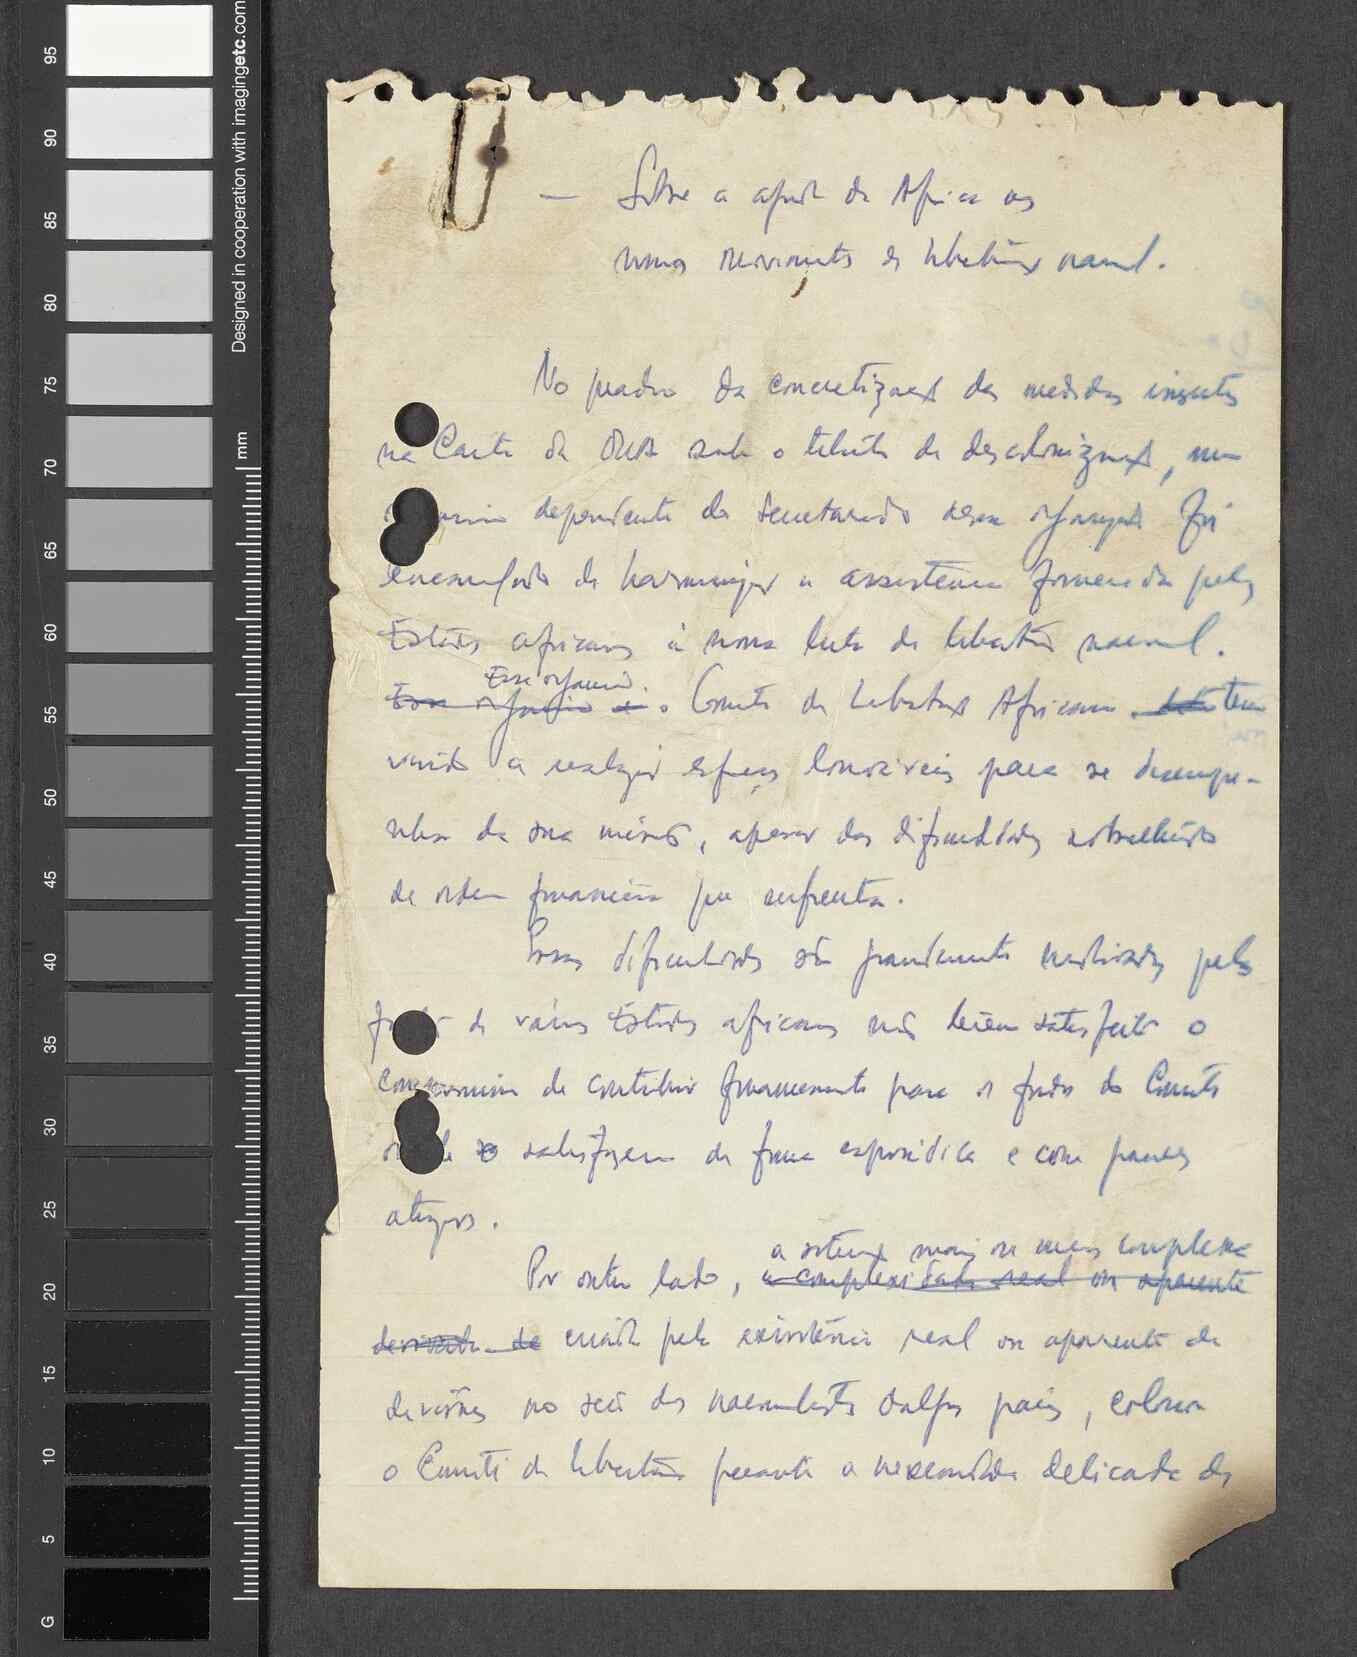 Designed in cooperation with imagingetc.com
mm
95
90
85
80
75
70
65
60
55
50
45
40
35
30
25
20
15
10
5
G
— Sobre a ajuda da Africa aos
nossos movimentos de libertação nacional.
No quadro da concretização das medidas insertas
na Carta da OUA sob o de descolonização, um
dependente do Secretariado dessa organização foi
encarregado de harmonizar a assistência fornecida pelos
Estados africanos à nossa luta de libertação nacional.
Esse organismo.
Esse organismo é o Comité de Libertação Africana tem
vindo a realizar esforços louváveis para se desempe-
nhar da sua missão, apesar das dificuldades sobretudo
de ordem financeira que enfrenta.
Essas dificuldades são grandemente motivadas pelo
facto de vários Estados africanos não terem satisfeito o
compromisso de contribuir financeiramente para o fundo do Comité
satisfazem de forma esporádica e com grandes
atrasos.
a situação mais ou menos complexa
Por outro lado, a complexidade real ou aparente
derivada de criada pela existência real ou aparente de
divisões no seio dos nacionalistas dalguns países, coloca
o Comité de libertação perante a necessidade delicada de